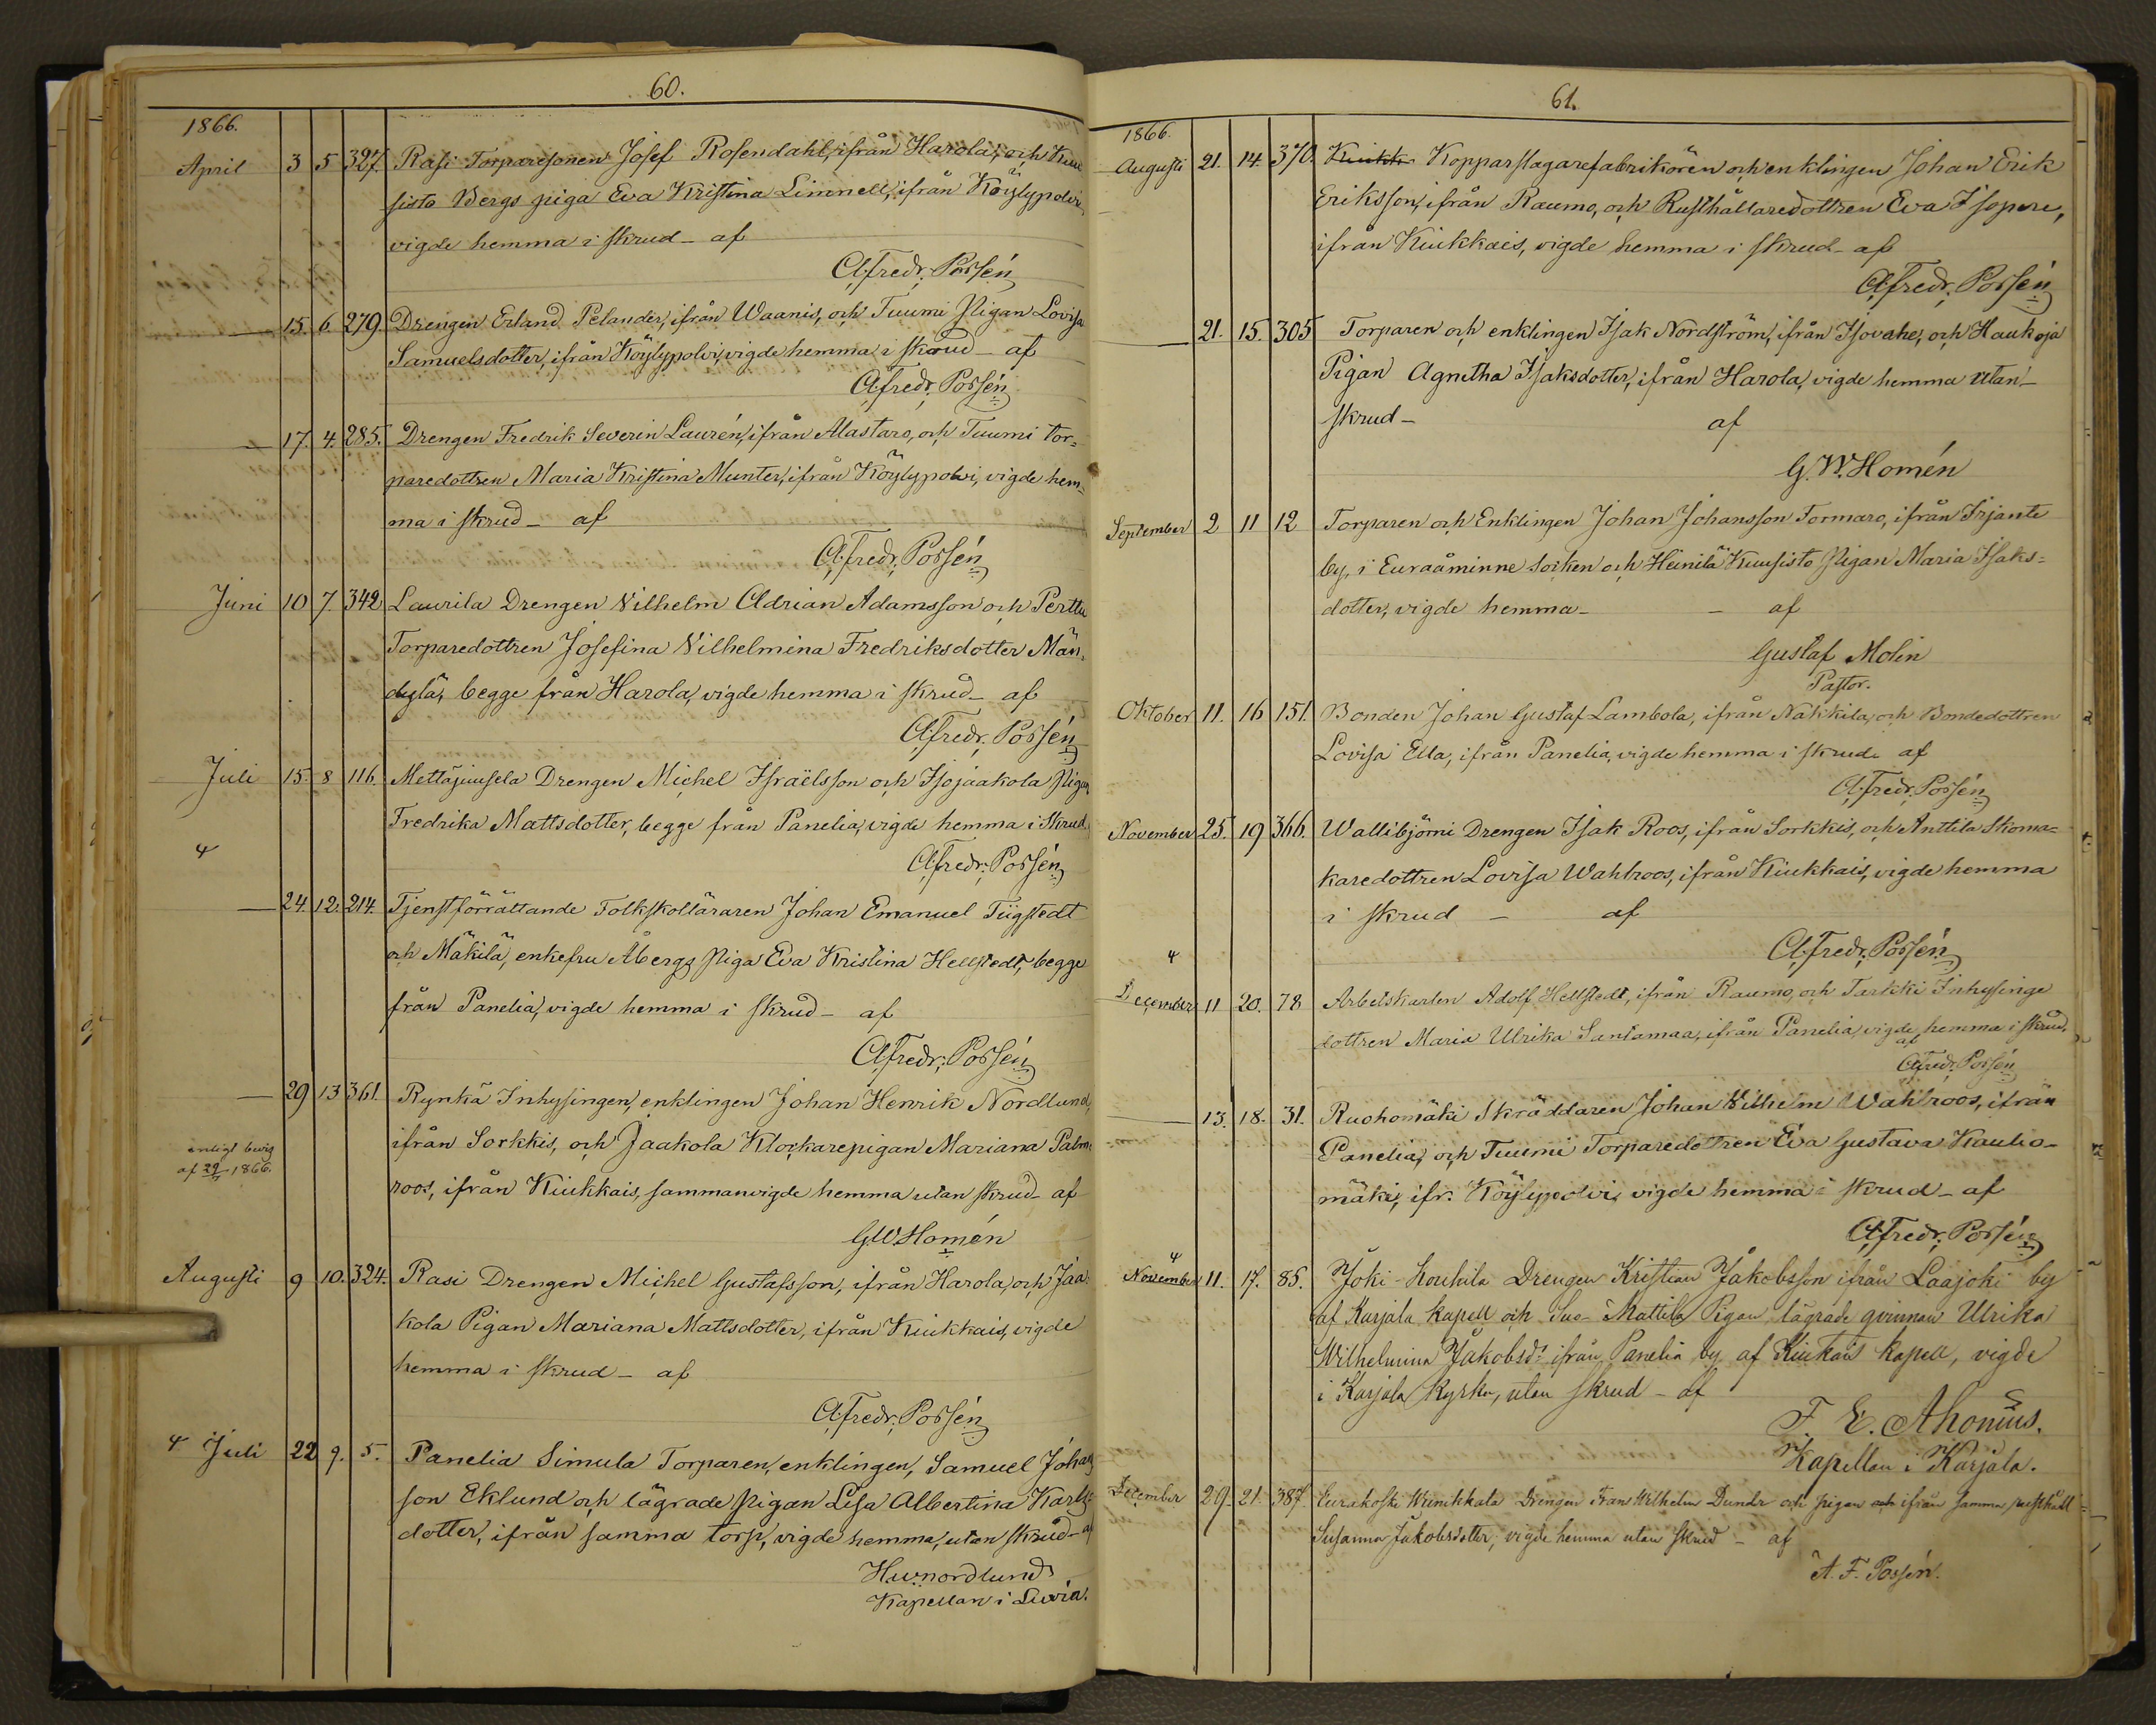 60.
1866.
April 3 5 327. Rasi Torparesonen Josef Rosendahl, ifrån Harola, och Kuu
sisto Bergs piga Eva Kristina Linnell, ifrån Köylypolvi,
vigde hemma i skrud - af
A. Fredr. Possén
15. 6 279. Drengen Erland Pelander, ifrån Waanis, och Tuumi Pigan Lovisa
Samuelsdotter, ifrån Köylypolvi, vigde hemma i skrud - af
A. Fredr. Possén
17. 4. 285. Drengen Fredrik Severin Laurén, ifrån Alastaro, och Tuumi Tor=
paredottren Maria Kristina Munter, ifrån Köylypolvi, vigde hem=
ma i skrud - af
A. Fredr. Possén
Juni 10 7. 342 Laurila Drengen Vilhelm Adrian Adamsson och Perttu
Torparedottren Josefina Vilhelmina Fredriksdotter Män,
dylä, begge från Harola, vigde hemma i skrud - af
A. Fredr. Possén
Juli 15. 8 116. Mettäjuusela Drengen Michel Israëlsson och Isojaakola Pigan
Fredrika Mattsdotter, begge från Panelia, vigde hemma i skrud
A. Fredr. Possén
24. 12. 214. Tjenstförrättande Folkskolläraren Johan Emanuel Tügstedt
och Mäkilä, enkefru Åbergs Piga Eva Kristina Hellstedt, begge
från Panelia, vigde hemma i skrud - af
A. Fredr. Possén
29 13 361. Rynkä Inhysingen, enklingen Johan Henrik Nordlund,
enligt bevis
af 29/7 1866.
ifrån Sorkkis, och Jaakola Klockarepigan Mariana Palm=
roos, ifrån Kiukkais, sammanvigde hemma utan skrud - af
G.W. Homén
Augusti 9 10. 324. Rasi Drengen Michel Gustafsson, ifrån Harola, och Jaa=
kola Pigan Mariana Mattsdotter, ifrån Kiukkais, vigde
hemma i skrud - af
A. Fredr. Possén
Juli 22 9. 5. Panelia Simula Torparen, enklingen, Samuel Johans
son Eklund och lägrade pigan Lisa Albertina Karls=
dotter, ifrån samma torp, vigde hemma, utan skrud - af
H.W. Nordlund
Kapellan i Luvia.
61.
1866.
Augusti 21. 14. 370. Kiukk Kopparslagarefabrikören och enklingen Johan Erik
Eriksson, ifrån Raumo, och Rusthållaredottren Eva Isopere,
ifrån Kiukkais, vigde hemma i skrud - af
A. Fredr. Possén
21. 15. 305 Torparen och enklingen Isak Nordström, ifrån Isovahe, och Haukoja
Pigan Agnetha Isaksdotter, ifrån Harola, vigde hemma utan
skrud - af
G.W. Homén
September 2 11 12 Torparen och Enklingen Johan Johansson Tormaro, ifrån Irjante
by, i Euraåminne socken och Heinilä Kuusisto Pigan Maria Isaks=
dotter, vigde hemma - - af
Gustaf Molin
Pastor.
Oktober 11. 16 151. Bonden Johan Gustaf Lambola, ifrån Nakkila, och Bondedottren
Lovisa Ella, ifrån Panelia, vigde hemma i skrud af
A. Fredr. Possén
November 25. 19 366. Wallibjörni Drengen Isak Roos, ifrån Sorkkis, och Anttila Skoma=
karedottren Lovisa Wahlroos, ifrån Kiukkais, vigde hemma
i skrud - af
A. Fredr. Possén
December 11 20. 78 Arbetskarlen Adolf Hellstedt, ifrån Raumo, och Tarkki Inhysinge
dottren Maria Ulrika Santamaa, ifrån Panelia, vigde hemma i skrud.
af
A. Fredr. Possén
13. 18. 31. Ruohomäki Skräddaren Johan Wilhelm Wahlroos, ifrån
Panelia, och Tuumi Torparedottren Eva Gustava Kaulio-
mäki, ifr. Köylypolvi, vigde hemma i skrud - af
A. Fredr. Possén
November 11. 17. 85. Joki-Kouhila Drengen Kristian Jakobsson ifrån Laajoki by
af Karjala kapell och Suo-Mattila Pigan lägrade qvinnan Ulrika
Wilhelmina Jakobsd:r ifrån Panelia by af Kiukais kapell, vigde
i Karjala kyrka, utan skrud - af
F. E. Ahonius.
Kapellan i Karjala.
December 29. 21. 387 Eurakoski Wimikkala Drengen Frans Wilhelm Dunder och pigan och ifrån samma rusthåll
Susanna Jakobsdotter, vigde hemma utan skrud - af
A. F. Possén.